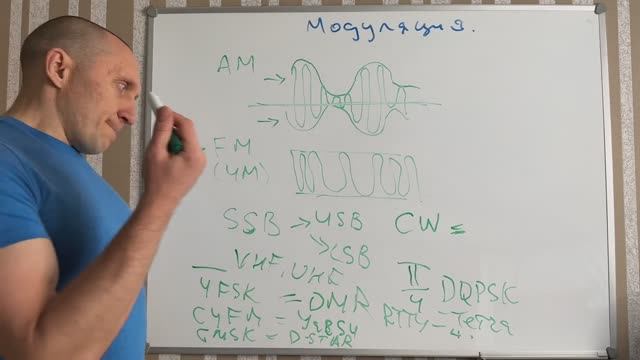 Модуляция.
AM
FM
(ЧМ)
SSB → USB
CW
→ LSB
VHF, UHF
4FSK = DMR
π/4 DQPSK
C4FM = Yaesu
RTTY – Tetra
GMSK = D-STAR